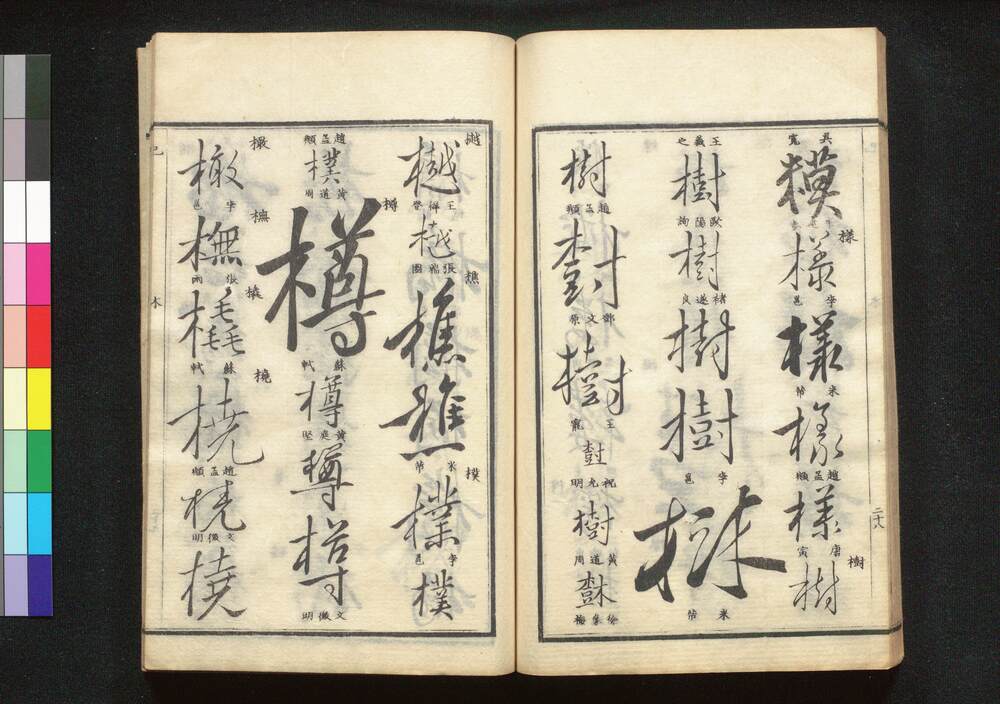 吳寬
模
樣
樣
李邕
樣
米芾
樣
趙孟頫
樣
唐寅
樹
樹
王羲之
樹
歐陽詢
樹
褚遂良
樹
樹
李邕
樹
米芾
樹
趙孟頫
樹
鄧文原
樹
王寵
尌
祝允明
樹
黃道周
徐渭
二十八
樾
樾
王鐸
樾
張瑞圖
樵
樵
樵
米芾
樸
樸
李邕
樸
趙孟頫
樸
黃道周
樽
樽
蘇軾
樽
黃庭堅
樽
樽
文徵明
橄
橄
李邕
橅
橅
張雨
橇
橇
蘇軾
橈
橈
趙孟頫
橈
文徵明
橈
木